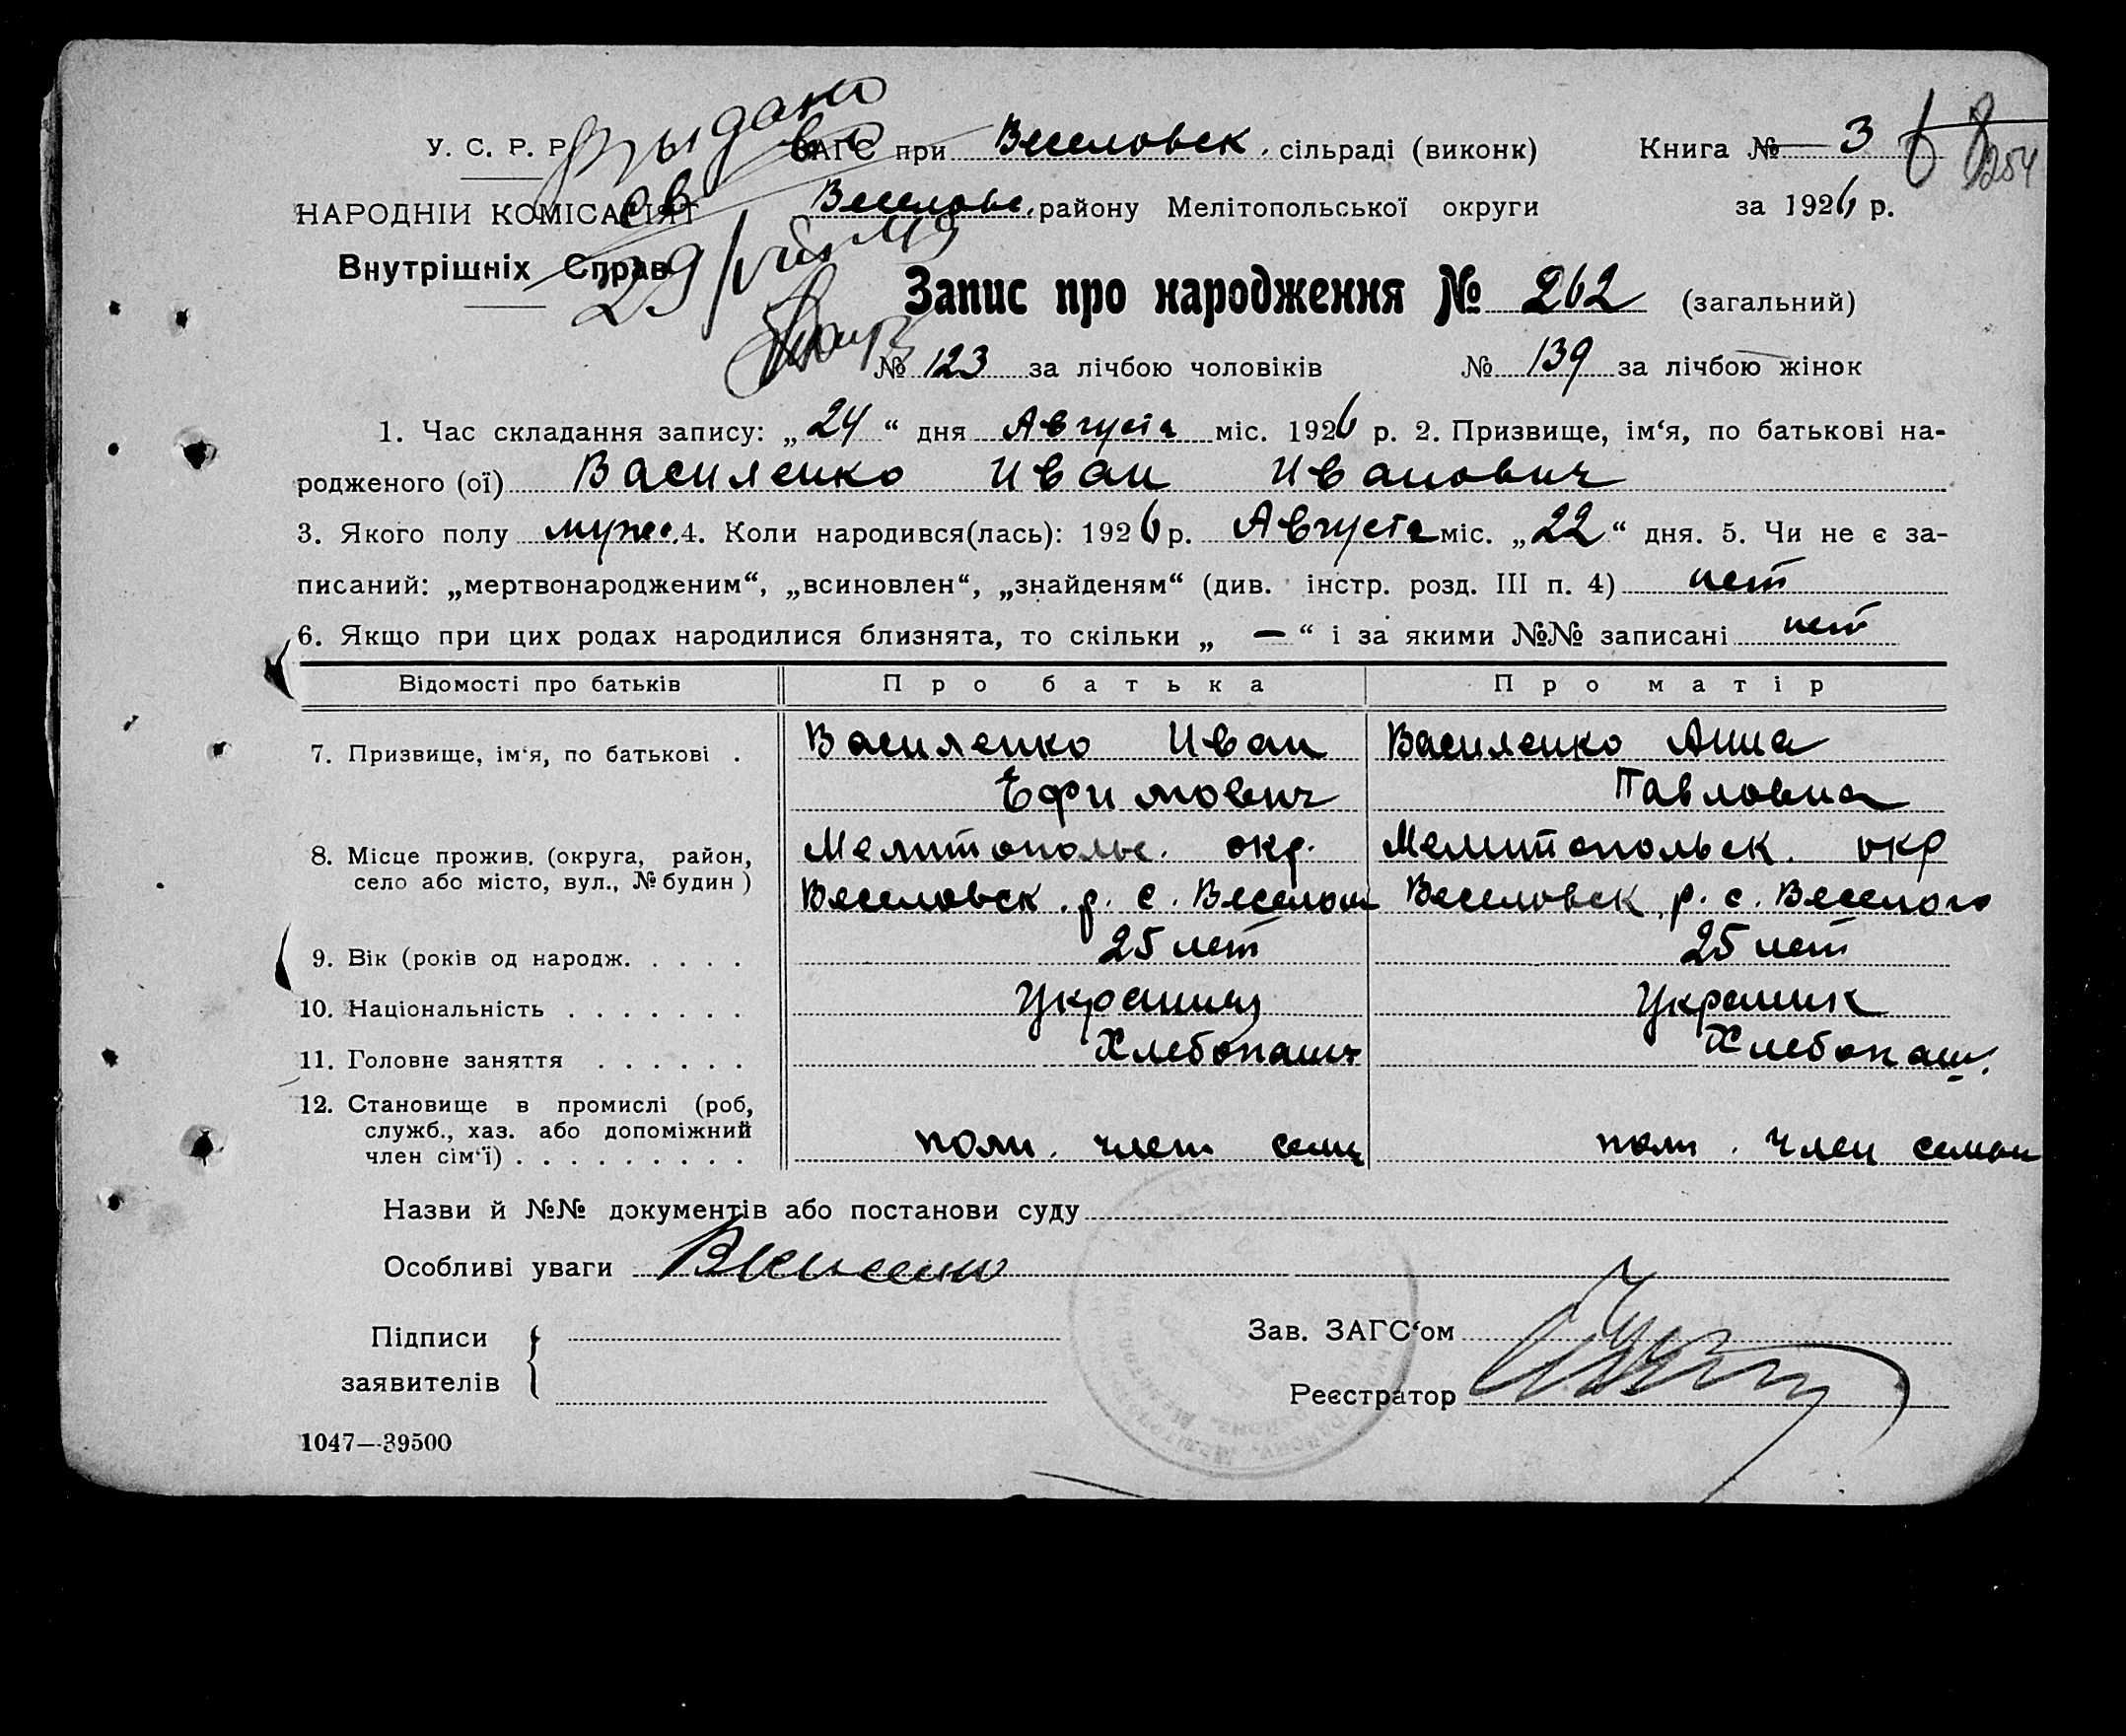 У. С. Р. Р.
НАРОДНІЙ КОМІСАРІЯТ
Внутрішніх Справ
Выдано
св во
29/
ЗАГС при Веселовск. сільраді (виконк)
Книга № 3
254
Веселовс. району Мелітопольської округи
за 1926 р.
Запис про народження № 262 (загальний)
№ 123 за лічбою чоловіків № 139 за лічбою жінок
1. Час складання запису: „24“ дня Августа міс. 1926 р. 2. Призвище, ім‘я, по батькові на-
родженого (ої) Василенко Иван Иванович
3. Якого полу мужс. 4. Коли народився(лась): 1926 р. Августа міс. „22“ дня. 5. Чи не є за-
писаний: „мертвонародженим“, „всиновлен“, „знайденям“ (див. інстр. розд. III п. 4) нет
6. Якщо при цих родах народилися близнята, то скільки „ — “ і за якими №№ записані нет
Відомості про батьків Про батька Про матір
7. Призвище, ім‘я, по батькові . Василенко Иван Василенко Анна
Ефимович Павловна
8. Місце прожив. (округа, район, Мелитопольс. окр. Мелитопольск. окр
село або місто, вул., № будин) Веселовск. р. с. Веселом Веселовск. р. с. Веселого
9. Вік (років од народж. . . . . 25 лет 25 лет
10. Національність . . . . . . . Украинец Украинк
11. Головне заняття . . . . . . Хлебопашц Хлебопаш.
12. Становище в промислі (роб,
служб., хаз. або допоміжний
член сім‘ї) . . . . . . . . . член семи член семьи
Назви й №№ документів або постанови суду
Особливі уваги
Підписи
заявителів
Зав. ЗАГС‘ом
Реєстратор
1047—39500